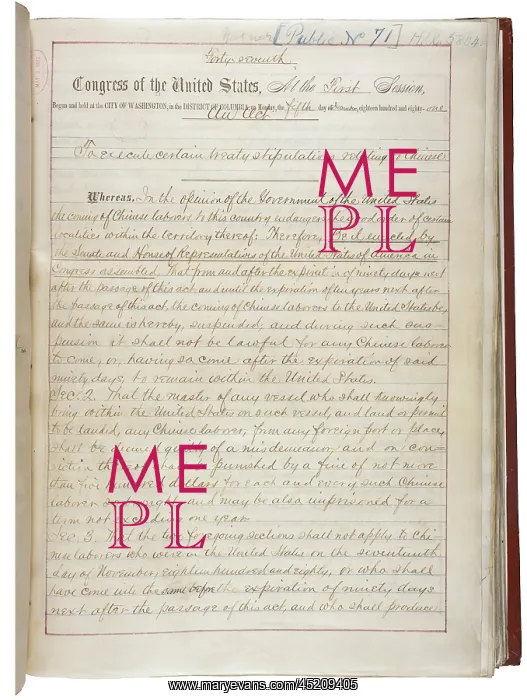 [Public No 71] H.R. 5804.
Forty-seventh
Congress of the United States, At the First Session,
Begun and held at the CITY OF WASHINGTON, in the DISTRICT OF COLUMBIA, on Monday, the fifth day of December, eighteen hundred and eighty-one
An Act
To execute certain treaty stipulations relating to Chinese.
Whereas, In the opinion of the Government of the United States
the coming of Chinese laborers to this country endangers the good order of certain
localities within the territory thereof: Therefore, Be it enacted by
the Senate and House of Representatives of the United States of America in
Congress assembled, That from and after the expiration of ninety days next
after the passage of this act, and until the expiration of ten years next after
the passage of this act, the coming of Chinese laborers to the United States be,
and the same is hereby, suspended; and during such sus-
pension it shall not be lawful for any Chinese laborer
to come, or, having so come after the expiration of said
ninety days, to remain within the United States.
Sec. 2. That the master of any vessel who shall knowingly
bring within the United States on such vessel, and land or permit
to be landed, any Chinese laborer, from any foreign port or place,
shall be deemed guilty of a misdemeanor, and on con-
viction thereof shall be punished by a fine of not more
than five hundred dollars for each and every such Chinese
laborer so brought, and may be also imprisoned for a
term not exceeding one year.
Sec. 3. That the two foregoing sections shall not apply to Chi-
nese laborers who were in the United States on the seventeenth
day of November, eighteen hundred and eighty, or who shall
have come into the same before the expiration of ninety days
next after the passage of this act, and who shall produce
ME
PL
ME
PL
www.maryevans.com/45209405